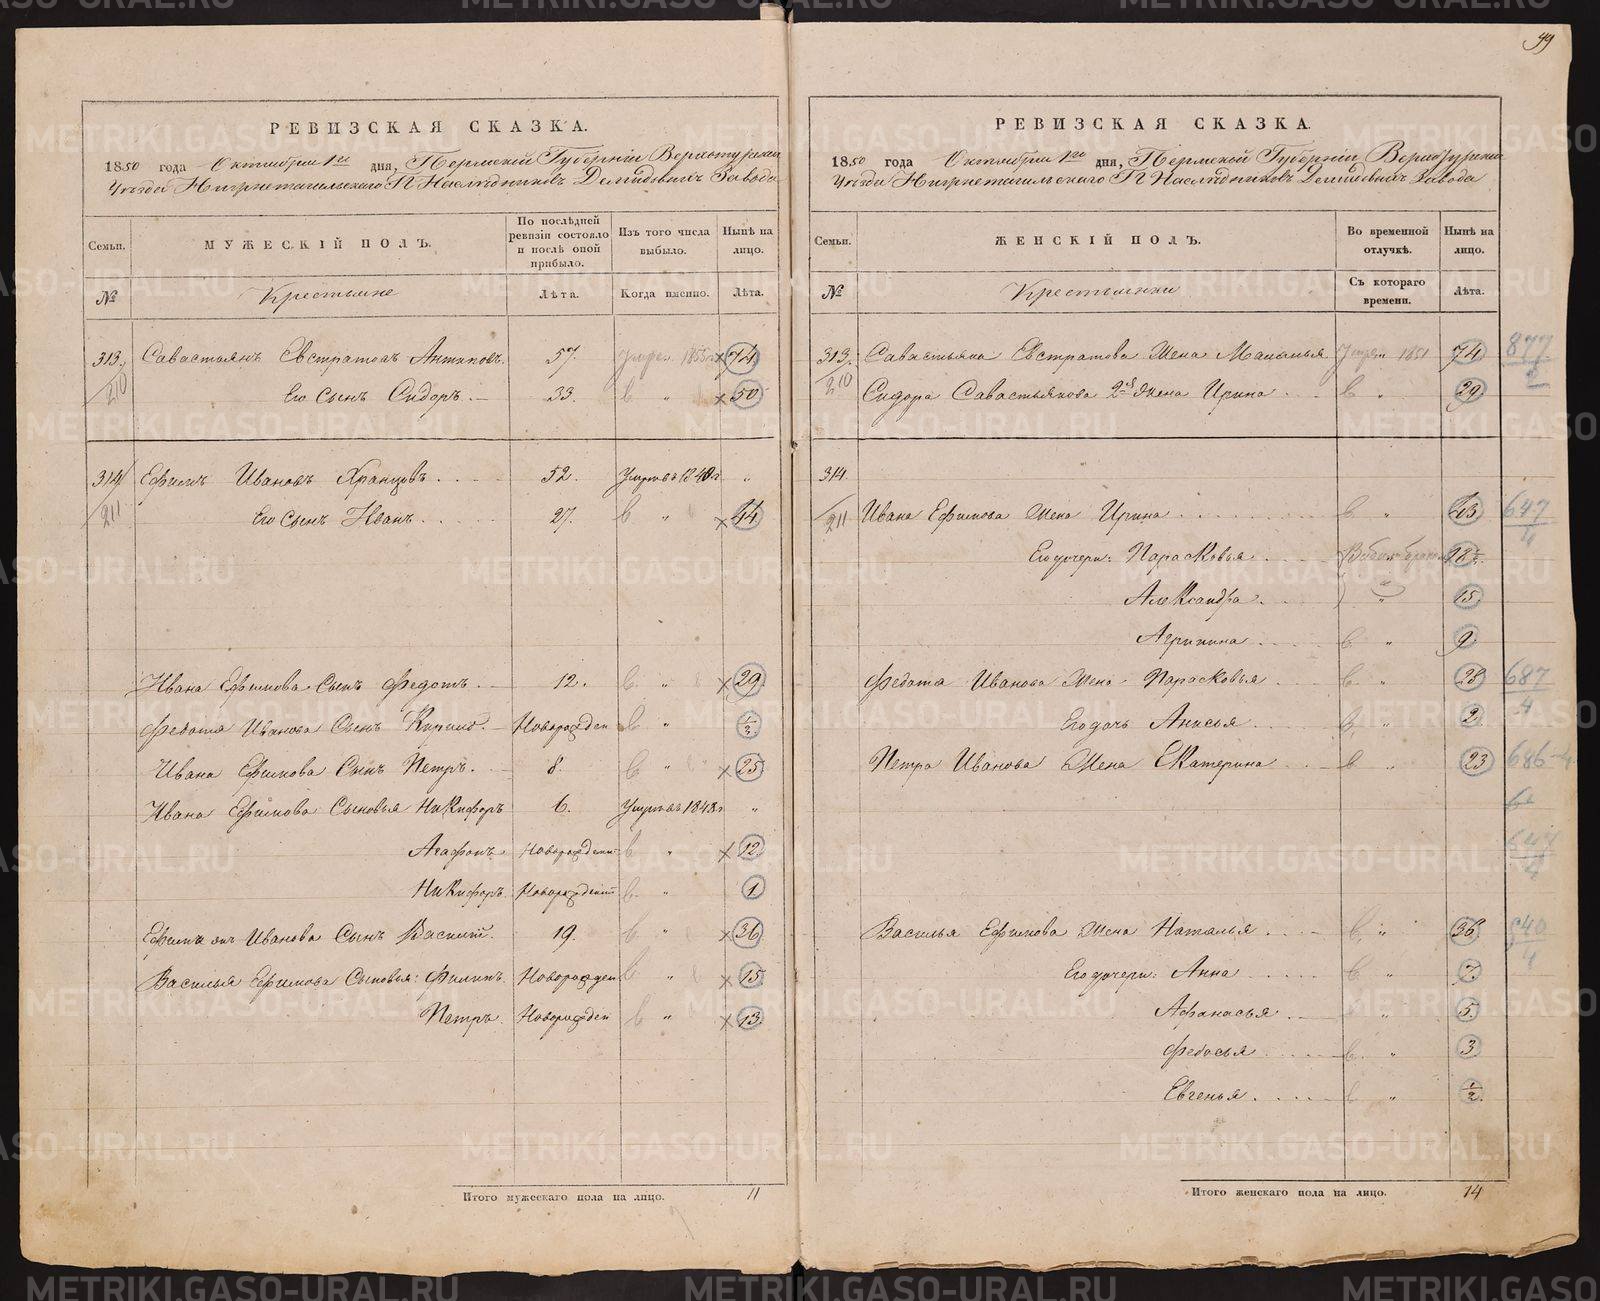 49
РЕВИЗСКАЯ СКАЗКА.
1850 года Октября 1го дня, Пермской Губерніи Верхотурскаго
Уѣзда Нижнетагильскаго Г. Наслѣдниковъ Демидовыхъ Завода
Семьи.
МУЖЕСКІЙ ПОЛЪ.
По послѣдней ревизіи состояло и послѣ оной прибыло.
Изъ того числа выбыло.
Нынѣ на лицо.
№
Крестьяне
Лѣта.
Когда именно.
Лѣта.
313. Савастьянъ Евстратовъ Антиповъ. 57. 1855 74
210 Его Сынъ Сидоръ. 33. в " 50
314 Ефимъ Ивановъ Храмцовъ. 52. "
211 Его Сынъ Иванъ. 27. в " 44
Ивана Ефимова Сынъ Федотъ. 12. в " 29
Федота Иванова Сынъ Новорожден в "
Ивана Ефимова Сынъ Петръ. 8. в " 25
Ивана Ефимова Сыновья Никифоръ 6. "
Агафонъ Новорожден в " 12
Никифоръ Новорожденный в " 1
Ефима Иванова Сынъ Василій. 19. в " 36
Василья Ефимова Сыновья: Филипъ. Новорожден в " 15
Петръ. Новорожден в " 13
Итого мужескаго пола на лицо. 11
РЕВИЗСКАЯ СКАЗКА.
1850 года Октября 1го дня, Пермской Губерніи Верхотурскаго
Уѣзда Нижнетагильскаго Г. Наслѣдниковъ Демидовыхъ Завода
Семьи.
ЖЕНСКІЙ ПОЛЪ.
Во временной отлучкѣ.
Нынѣ на лицо.
№
Крестьянки
Съ котораго времени.
Лѣта.
313. Савастьяна Евстратова Жена Маланья 1851 74 877
210 Сидора Савастьянова 2я Жена Ирина в " 29 2
314.
211 Ивана Ефимова Жена Ирина в " 43 647
4
Его дочери: Парасковья 18½
Александра. " 15
Агрипина в " 9
Федота Иванова Жена Парасковья в " 28 687
Его дочь Анисья в " 2 4
Петра Иванова Жена Екатерина в " 23 686-4
647
4
Василья Ефимова Жена Наталья в " 36
4
Его дочери: Анна в " 7
Афанасья " 5
Федосья в " 3
Евгенья в " ½
Итого женскаго пола на лицо. 14
METRIKI.GASO-URAL.RU